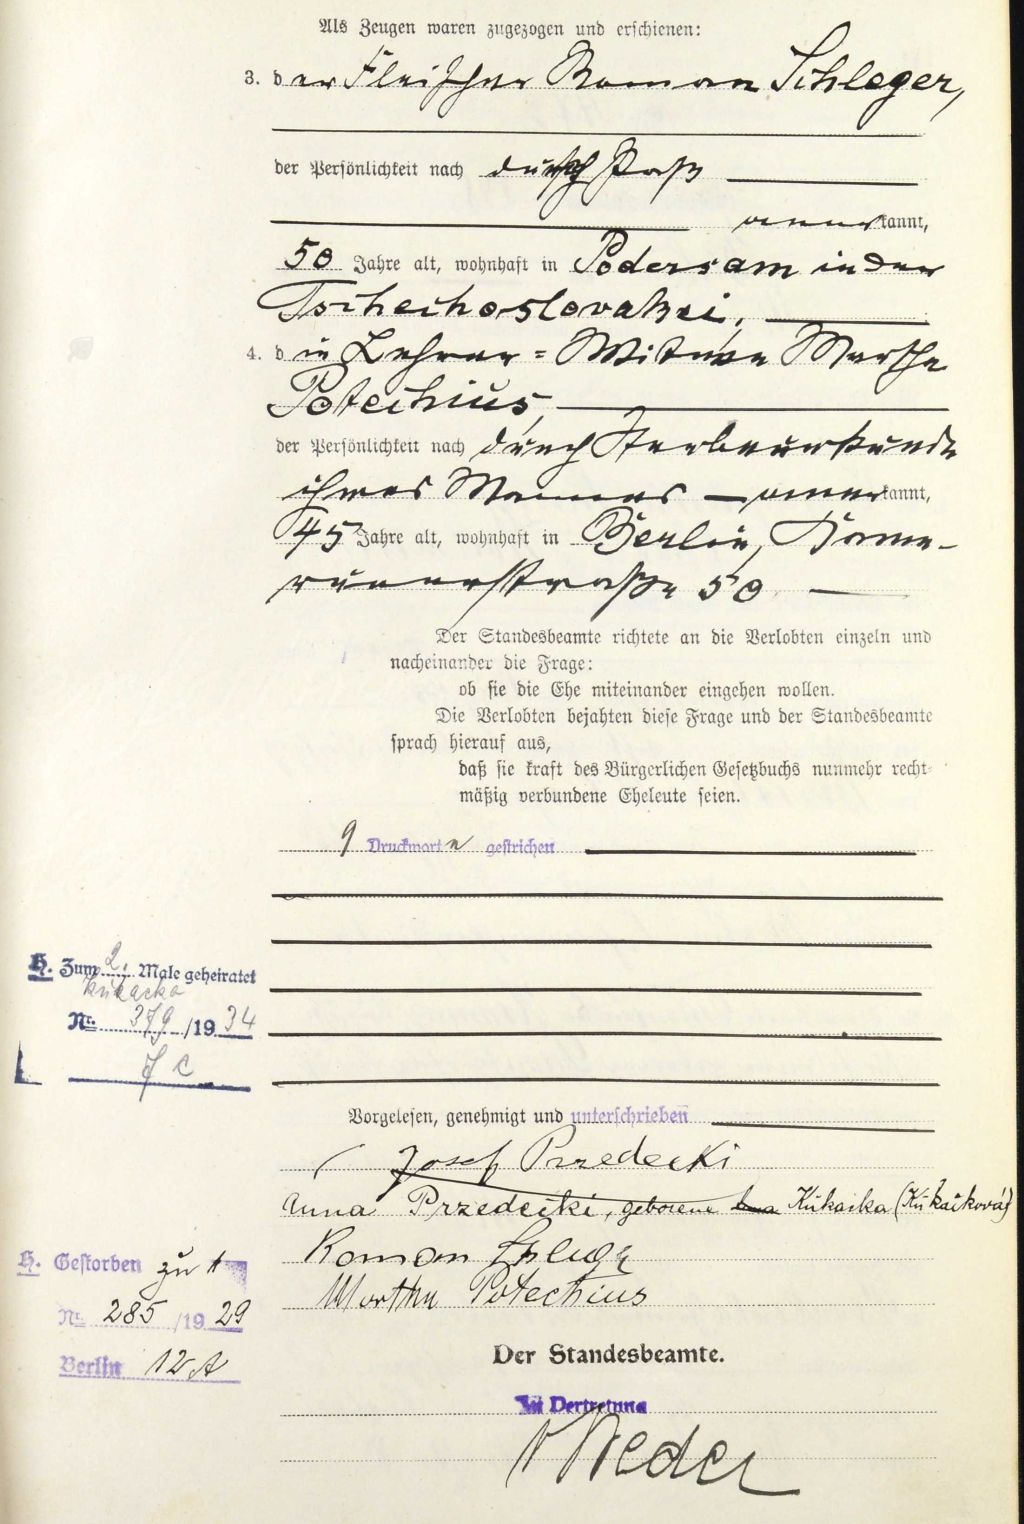 Als Zeugen waren zugezogen und erschienen:
3. der Fleischer Roman Schleger,
der Persönlichkeit nach durch Paß
anerkannt,
50 Jahre alt, wohnhaft in Podersam in der
Tschechoslovakei,
4. die Lehrer-Witwe Marthe
Potechius,
der Persönlichkeit nach durch Sterbeurkunde
ihres Mannes anerkannt,
45 Jahre alt, wohnhaft in Berlin, Kame-
runerstraße 50.
Der Standesbeamte richtete an die Verlobten einzeln und
nacheinander die Frage:
ob sie die Ehe miteinander eingehen wollen.
Die Verlobten bejahten diese Frage und der Standesbeamte
sprach hierauf aus,
daß sie kraft des Bürgerlichen Gesetzbuchs nunmehr recht-
mäßig verbundene Eheleute seien.
9 Druckworte gestrichen
H. Zum 2. Male geheiratet
Kukacka
Nr. 379/1934
Vorgelesen, genehmigt und unterschrieben
Josef Przedecki
Anna Przedecki, geborene Kukacka (Kukačková)
Roman
Marthe Potechius
H. Gestorben zu 1
Nr. 285/1929
Berlin 12A
Der Standesbeamte.
In Vertretung